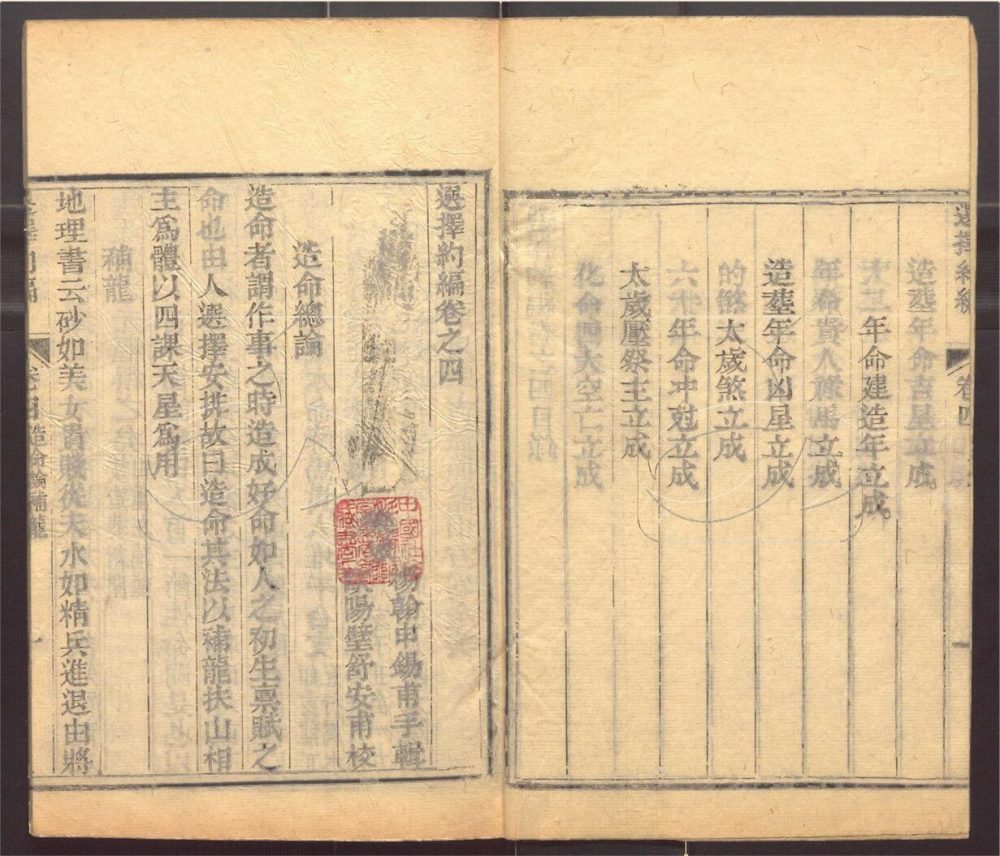 選擇約編
卷四
造塟年命吉星立成
年命建造年立成
年命貴人祿馬立成
造塟年命凶星立成
的煞太歲煞立成
六十年命冲尅立成
太歲壓祭主立成
化命四大空亡立成
一
選擇約編卷之四
楊翰中錫甫手輯
陽壁舒安甫校
造命總論
造命者謂作事之時造成好命如人之初生禀賦之
命也由人選擇安排故曰造命其法以補龍扶山相
主爲體以四課天星爲用
補龍
地理書云砂如美女貴賤從夫水如精兵進退由將
卷四
造命總論補龍
一